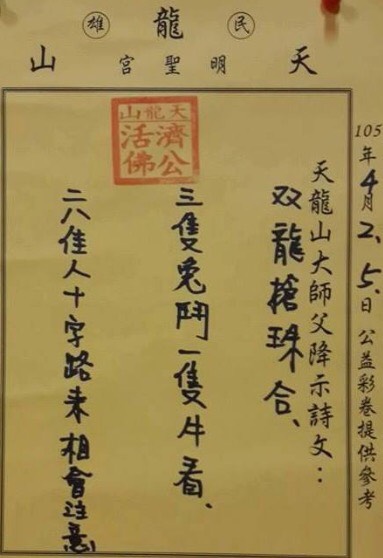 天龍山
民雄
明聖宮
105年4月2、5、日公益彩卷提供參考
天龍山大師父降示詩文：
双龍搶珠合、
三隻兔鬥一隻牛看、
二八佳人十字路來相會注意
天龍山
濟公
活佛